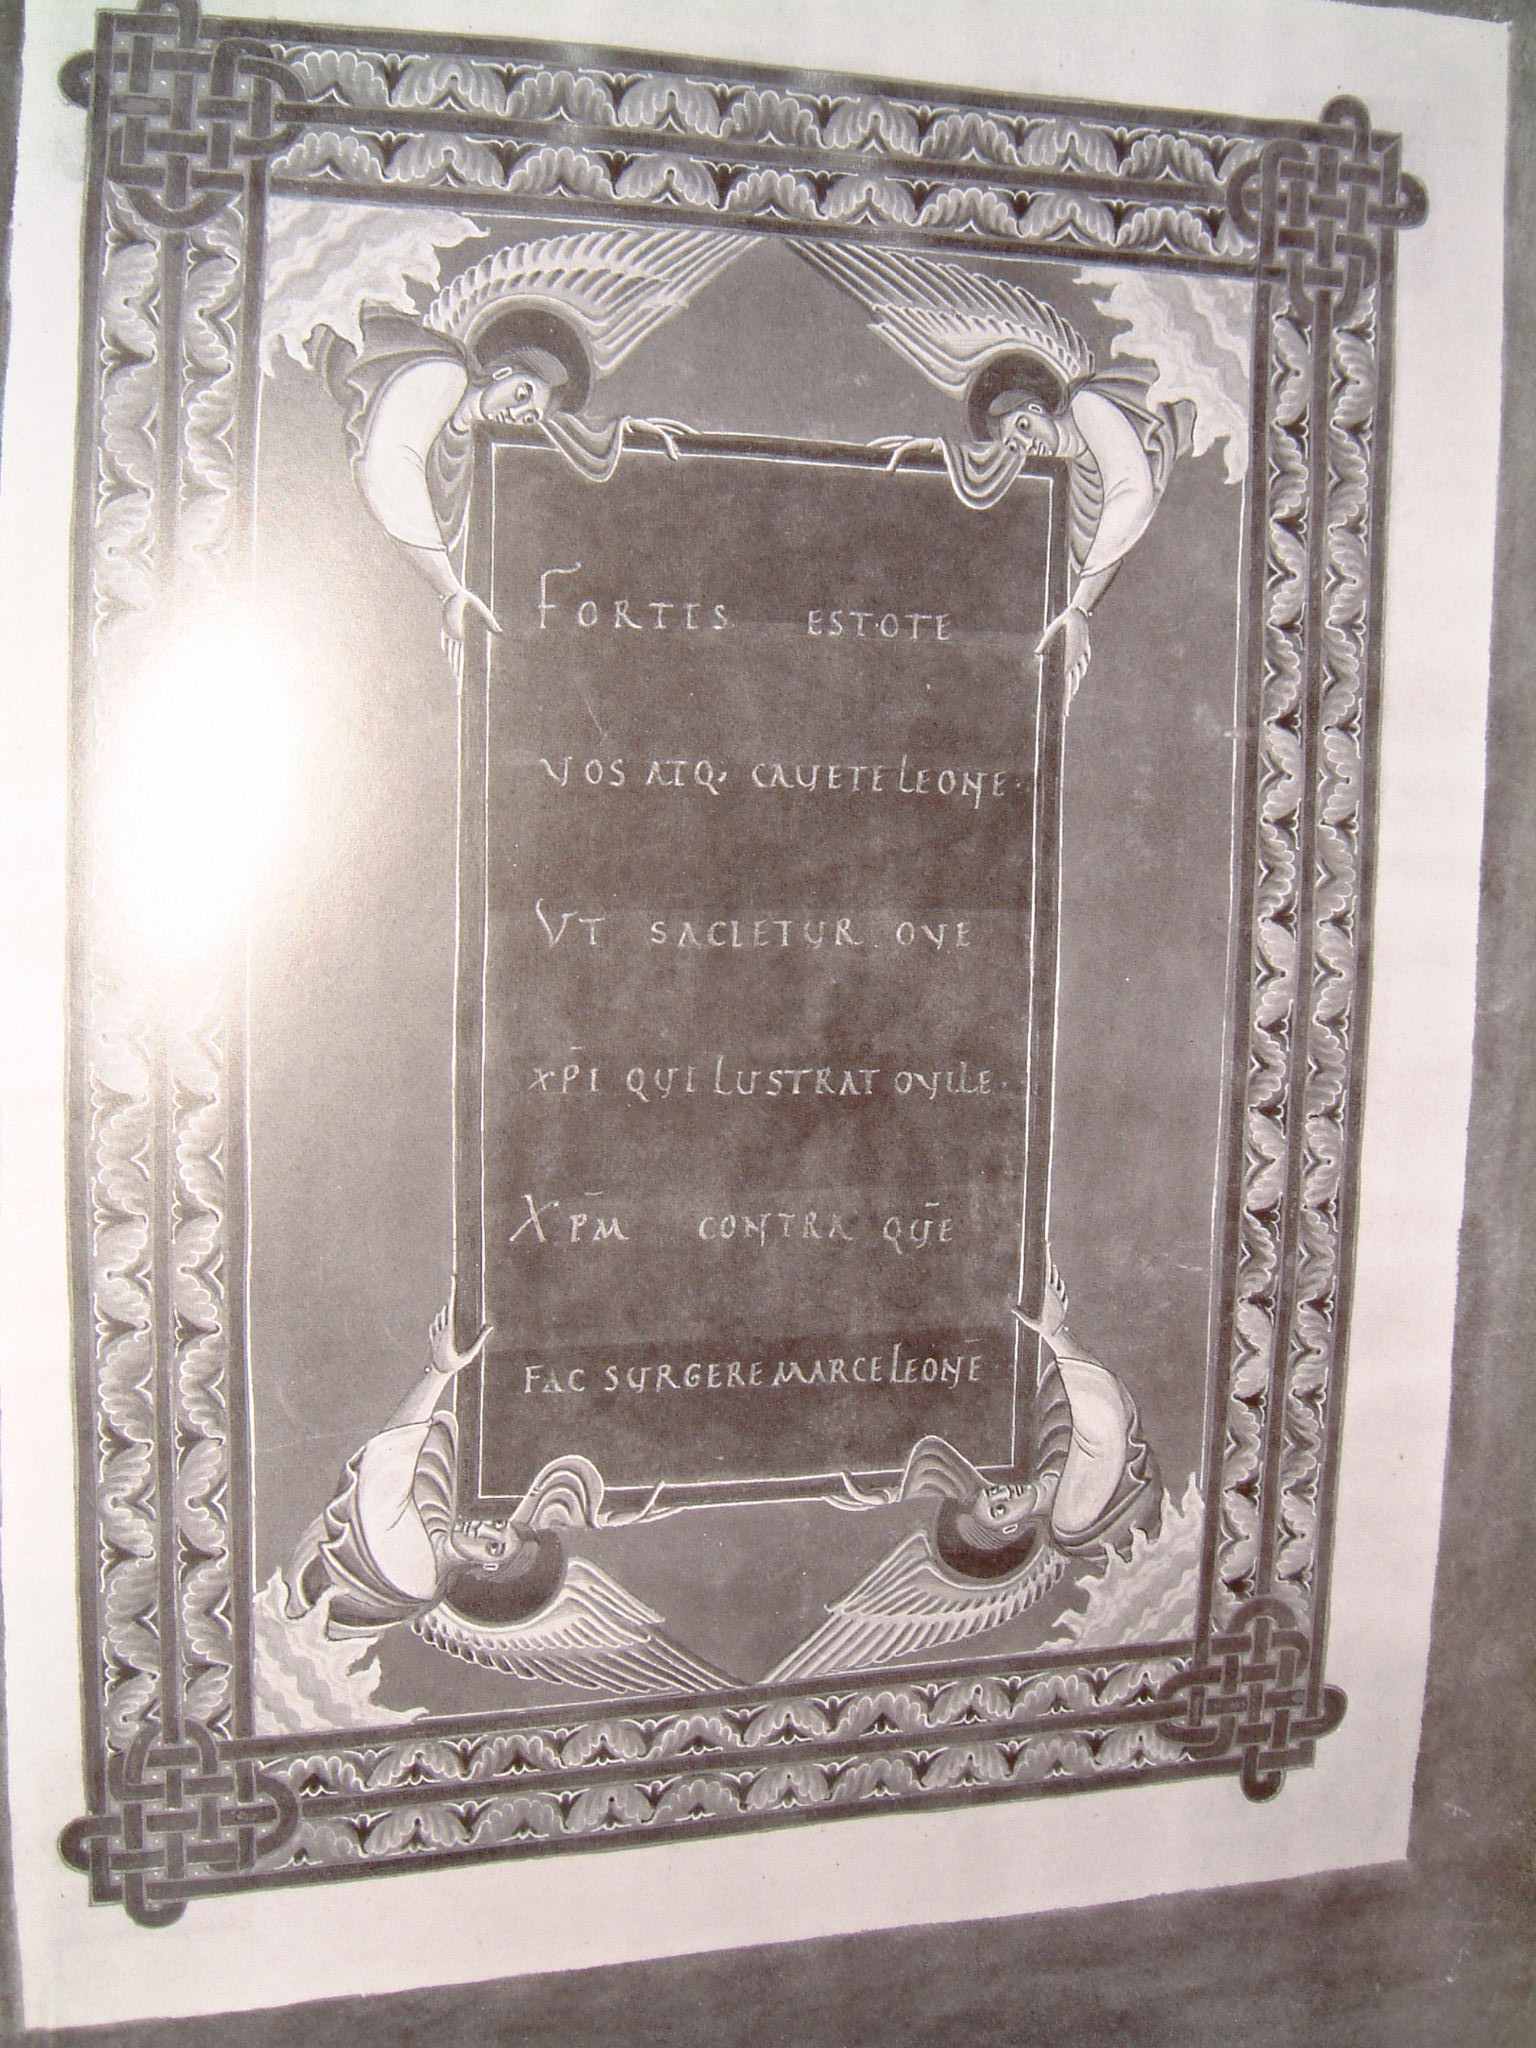 FORTES EST·OTE
VOS ATQ; CAVETE LEONE·
VT SACIETUR OVE
XP̄I QUI LUSTRAT OVILE·
XP̄M CONTRA QUĒ
FAC SURGERE MARCE LEONĒ